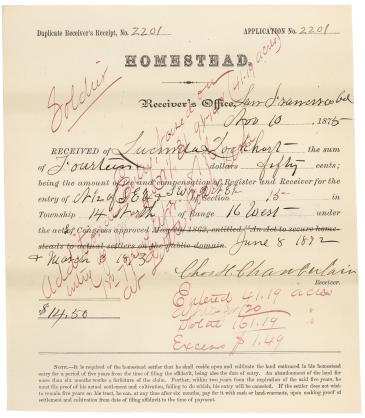 Duplicate Receiver's Receipt, No. 2201
APPLICATION No. 2201
HOMESTEAD.
Soldier
Receiver's Office, San Francisco Cal
Nov 10 1875
RECEIVED OF Lucinda Lockhart the sum
of Fourteen dollars fifty cents;
being the amount of fee and compensation of Register and Receiver for the
entry of of Section 15 in
Township 14 North of Range 16 West under
the act of Congress approved May 20, 1862, entitled "An Act to secure homesteads to actual settlers on the public domain. June 8 1872
& March 3 1873
Chas H. Chamberlain
Receiver.
$14.50
Entered 41.19 acres
120 "
Total 161.19 "
Excess $1.49
NOTE.—It is required of the homestead settler that he shall reside upon and cultivate the land embraced in his homestead
entry for a period of five years from the time of filing the affidavit, being also the date of entry. An abandonment of the land for
more than six months works a forfeiture of the claim. Further, within two years from the expiration of the said five years, he
must file proof of his actual settlement and cultivation, failing to do which, his entry will be canceled. If the settler does not wish
to remain five years on his tract, he can, at any time after six months, pay for it with cash or land-warrants, upon making proof of
settlement and cultivation from date of filing affidavit to the time of payment.